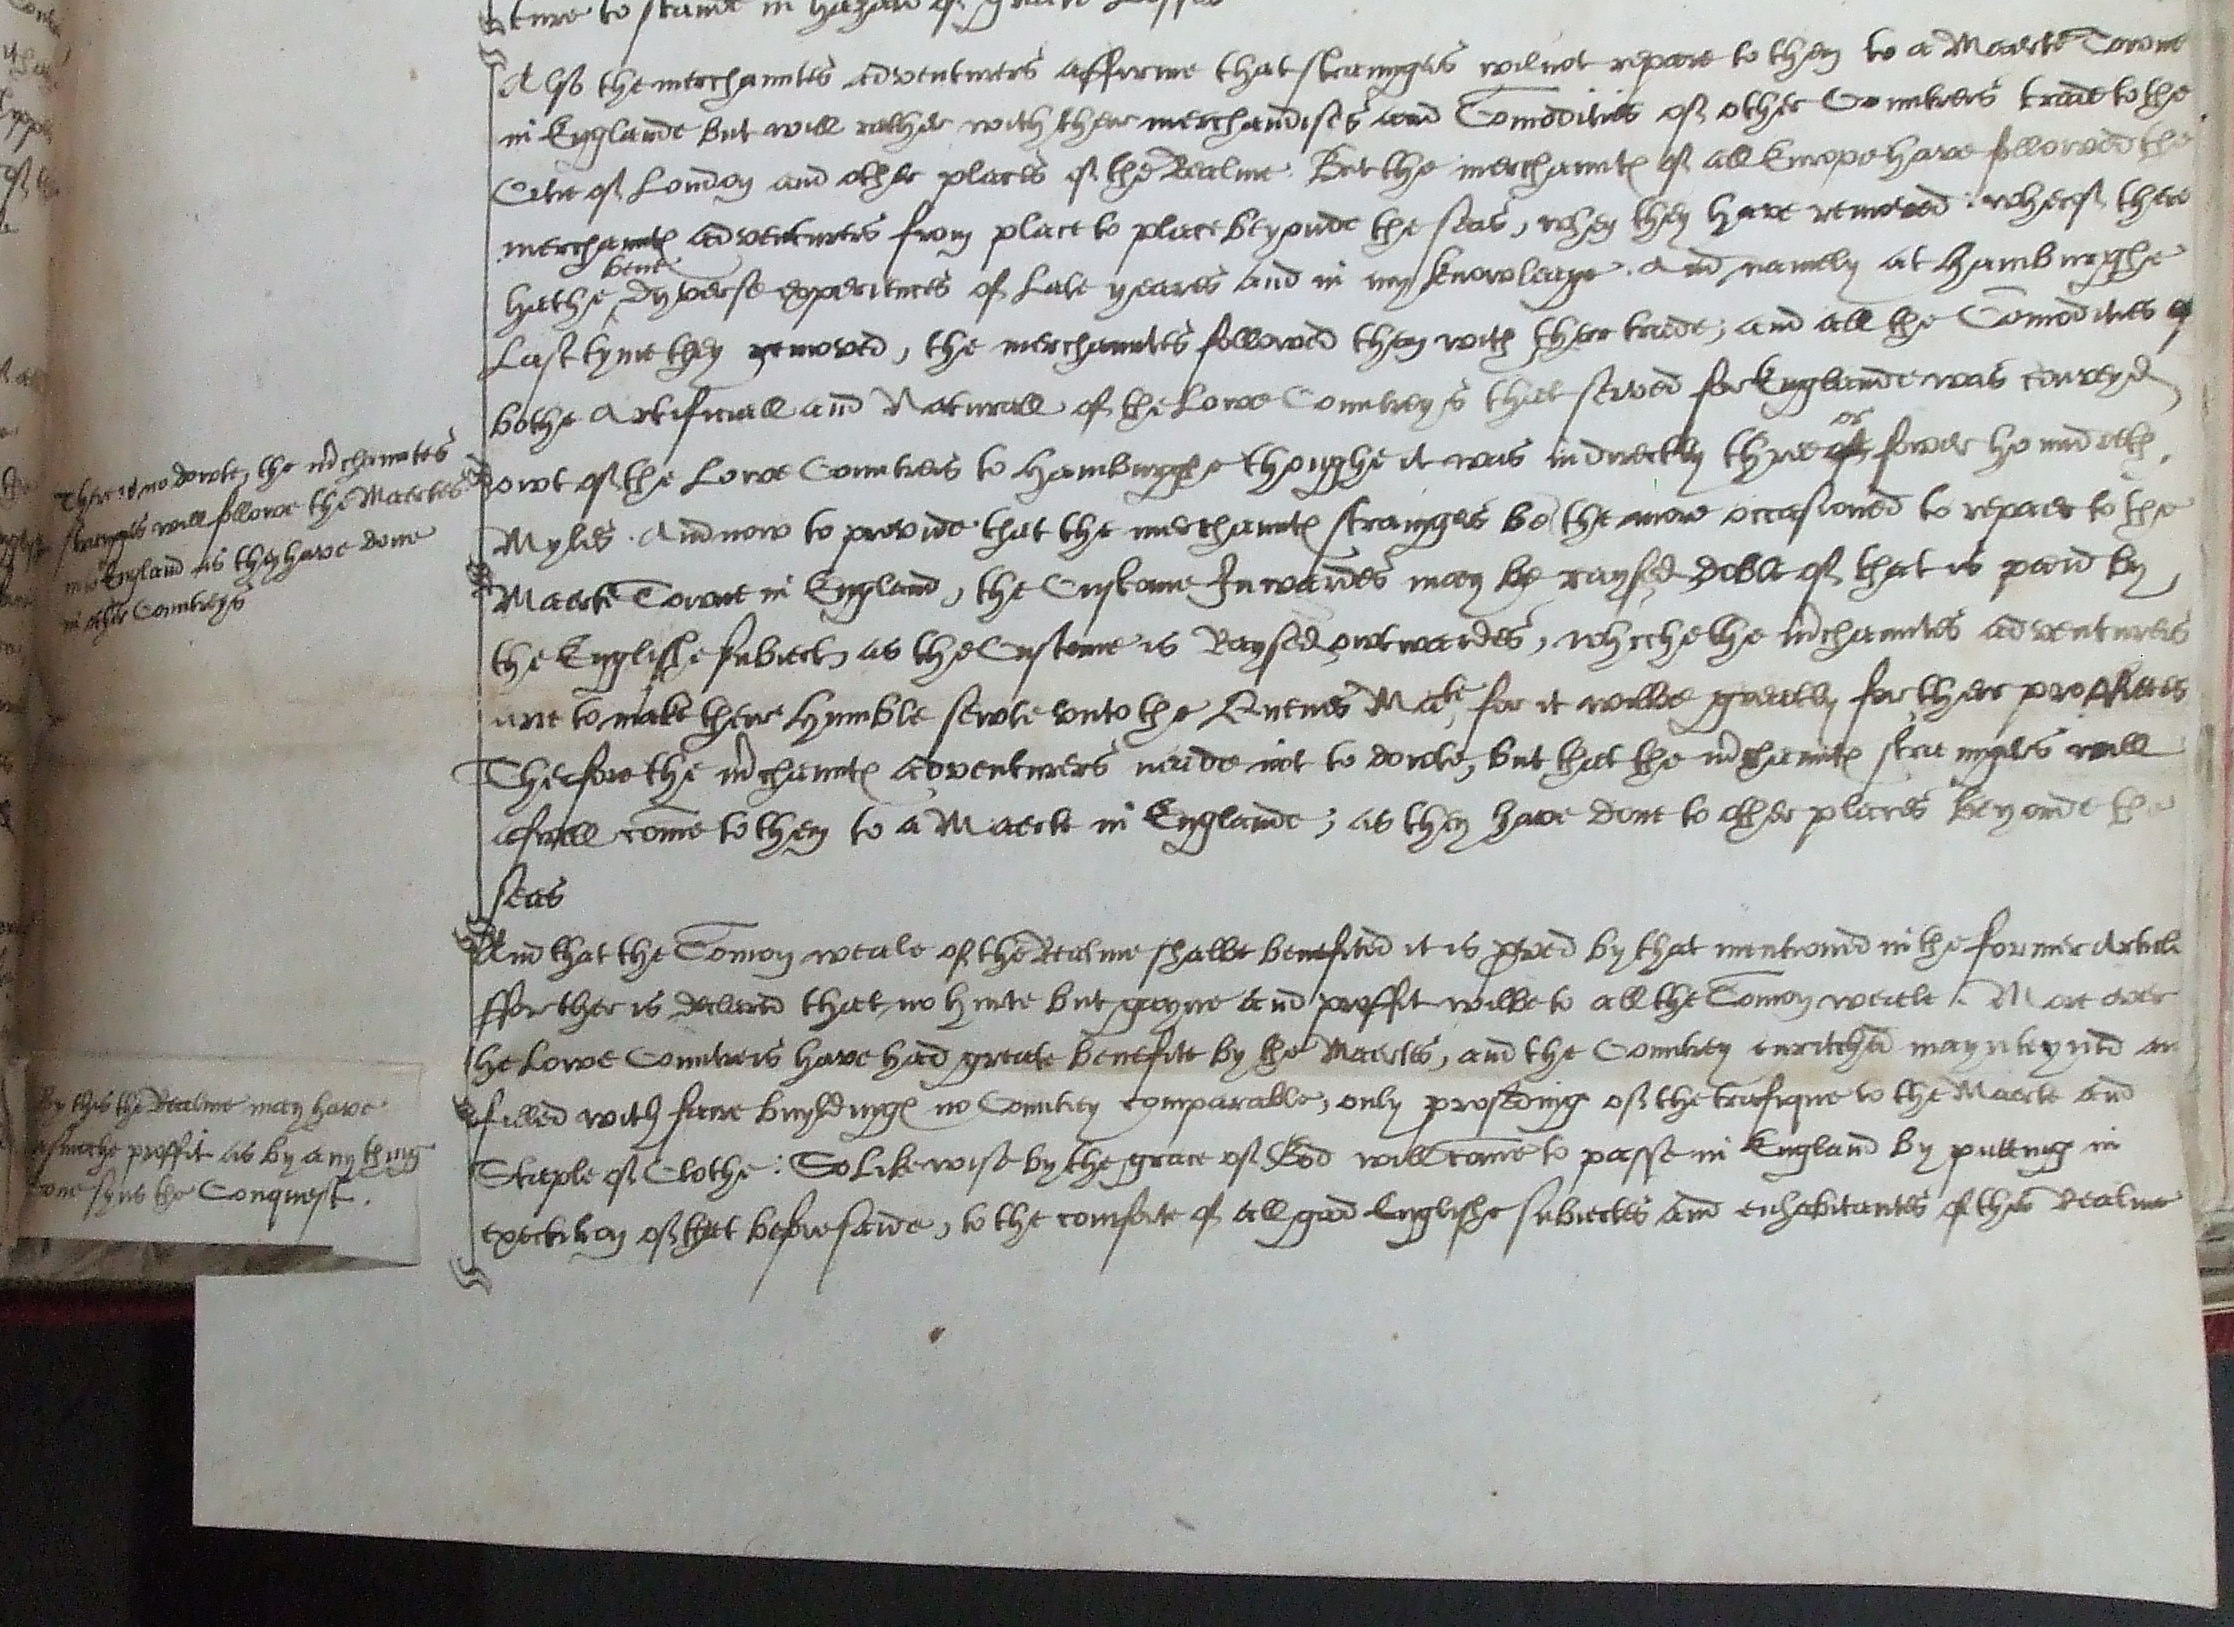 ture to stande in hazard of greate Losses
Also the merchauntes adventurers affirme that straungers wil not repare to them to a Maerte Towne
in Englande but will rather with their merchaundises and Comodities of other Countreis trade to the
Citie of London and other places of the Realme. But the merchauntes of all Europe have followed the
merchauntes adventurers from place to place beyonde the seas, when they have removed: wherof there
hathe bene dyverse experiences of late yeares and in my knowleage. And namely at Hamburghe
Last tyme they removed, the merchauntes followed them with their trade, and all the Comodities
bothe Artificiall and Naturall of the Lowe Countreys that served for Englande was conveyd
owt of the Lowe Countreis to Hamburghe thoughe it was indirectly three or fower houndreth
Myles. And now to provide that the merchauntes straungers be the more occasioned to repaer to the
Maerte Towne in England, the Custome Inwardes may be raysed doble of that is paid by
the Englishe subiectes as the Custome is Raysed owtwardes, whiche the merchauntes adventurers
are to make there humble sewte unto the Quenes Matie, for it wilbe greatly for their proffittes
Therfore the merchauntes adventurers neade not to dowte, but that the merchauntes straungers will
aswell come to them to a Maerte in Englande; as they have done to other places beyonde the
seas
And that the Comon weale of the Realme shalbe benefited it is proved by that mentioned in the former Article
ffor ther is declared that no hurte but gayne and proffit wilbe to all the Comon weale. More over
the Lowe Countreis have had greate benefite by the Maertes, and the Countrey enritched maynteyned an
filled with faire buyldinges no Countrey comparable, only proseding of the trafique to the Maerte and
Staple of Clothe: So Likewise by the grace of God will come to passe in England by putting in
exectution of that beforesaide, to the comforte of all good Englishe subiectes and enhabitantes of the Realme
There is no dowte, the merchauntes
straungers will followe the Maertes
into England as they have done
in other Countreys
By this the Realme may have
asmoche proffit as by any thing
done syns the Conquest.